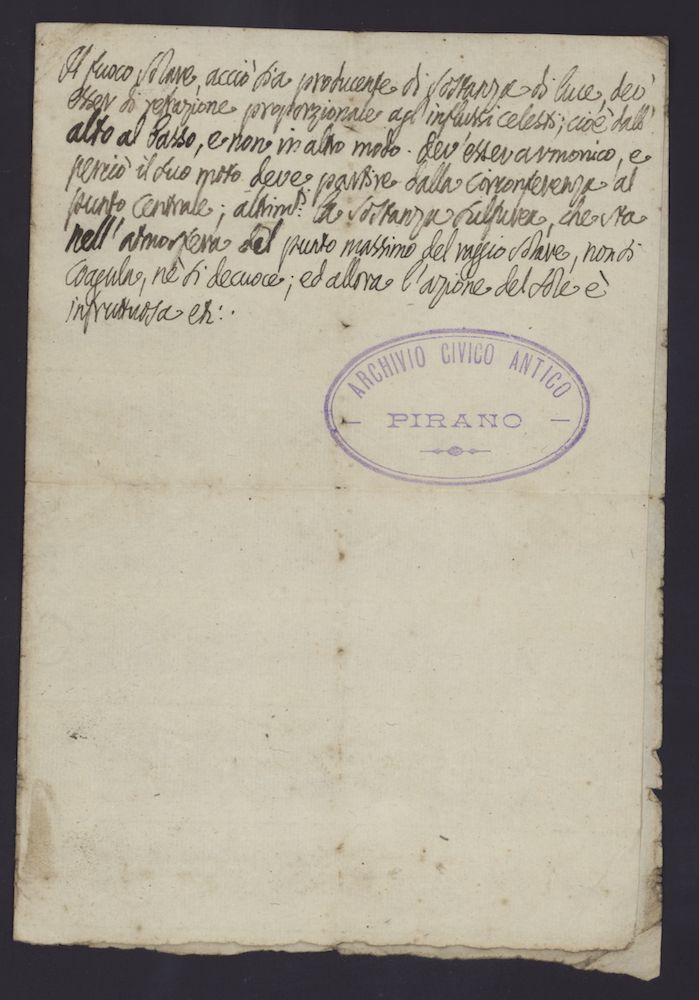 Il fuoco solare, acciò sia producente di sostanza di luce, dev'
esser di relazione proporzionale agl'influssi celesti; cioè dall'
alto al basso, e non in altro modo. dev'esser armonico, e
perciò il suo moto deve partire dalla circonferenza al
punto centrale; altrim.ti la sostanza sulfurea, che sta
nell'atmosfera del punto massimo del raggio solare, non si
coagula, nè si decuoce; ed allora l'azione del sole è
infruttuosa
ARCHIVIO CIVICO ANTICO
PIRANO